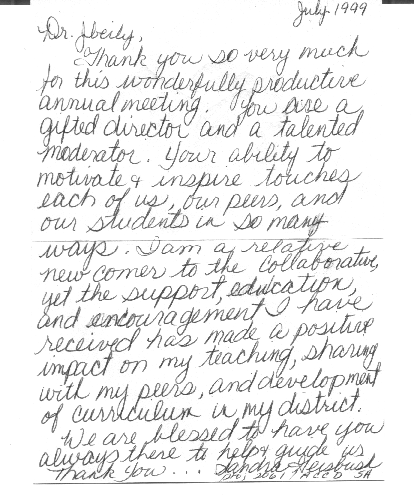 July 1999
Dr. Jbeily,
Thank you so very much
for this wonderfully productive
annual meeting. You are a
gifted director and a talented
moderator. Your ability to
motivate & inspire touches
each of us, our peers, and
our students in so many
ways. I am a relative
new comer to the collaborative,
yet the support, education,
and encouragement I have
received has made a positive
impact on my teaching, sharing
with my peers, and development
of curriculum in my district.
We are blessed to have you
always there to help & guide us
Thank you... Sandra